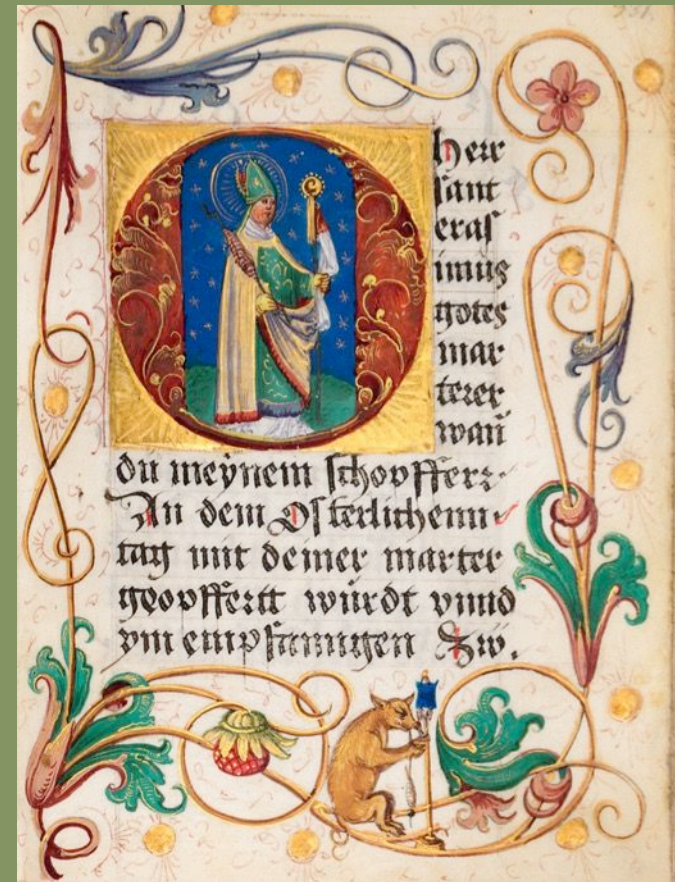 O herr
sant
eras
imus
gotes
mar
terer
wañ
du meynem schopfferr
An dem Osterlichenn
tag mit deiner marter
geopffertt würdt vnnd
ym empfanngen Zw.